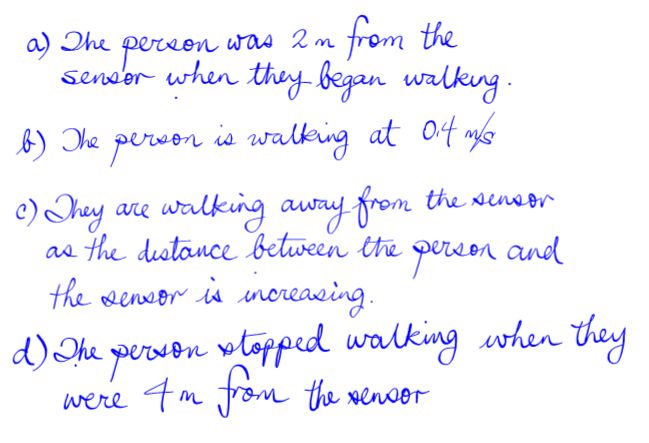 a) The person was 2 m from the
sensor when they began walking.
b) The person is walking at 0.4 m/s
c) They are walking away from the sensor
as the distance between the person and
the sensor is increasing.
d) The person stopped walking when they
were 4 m from the sensor